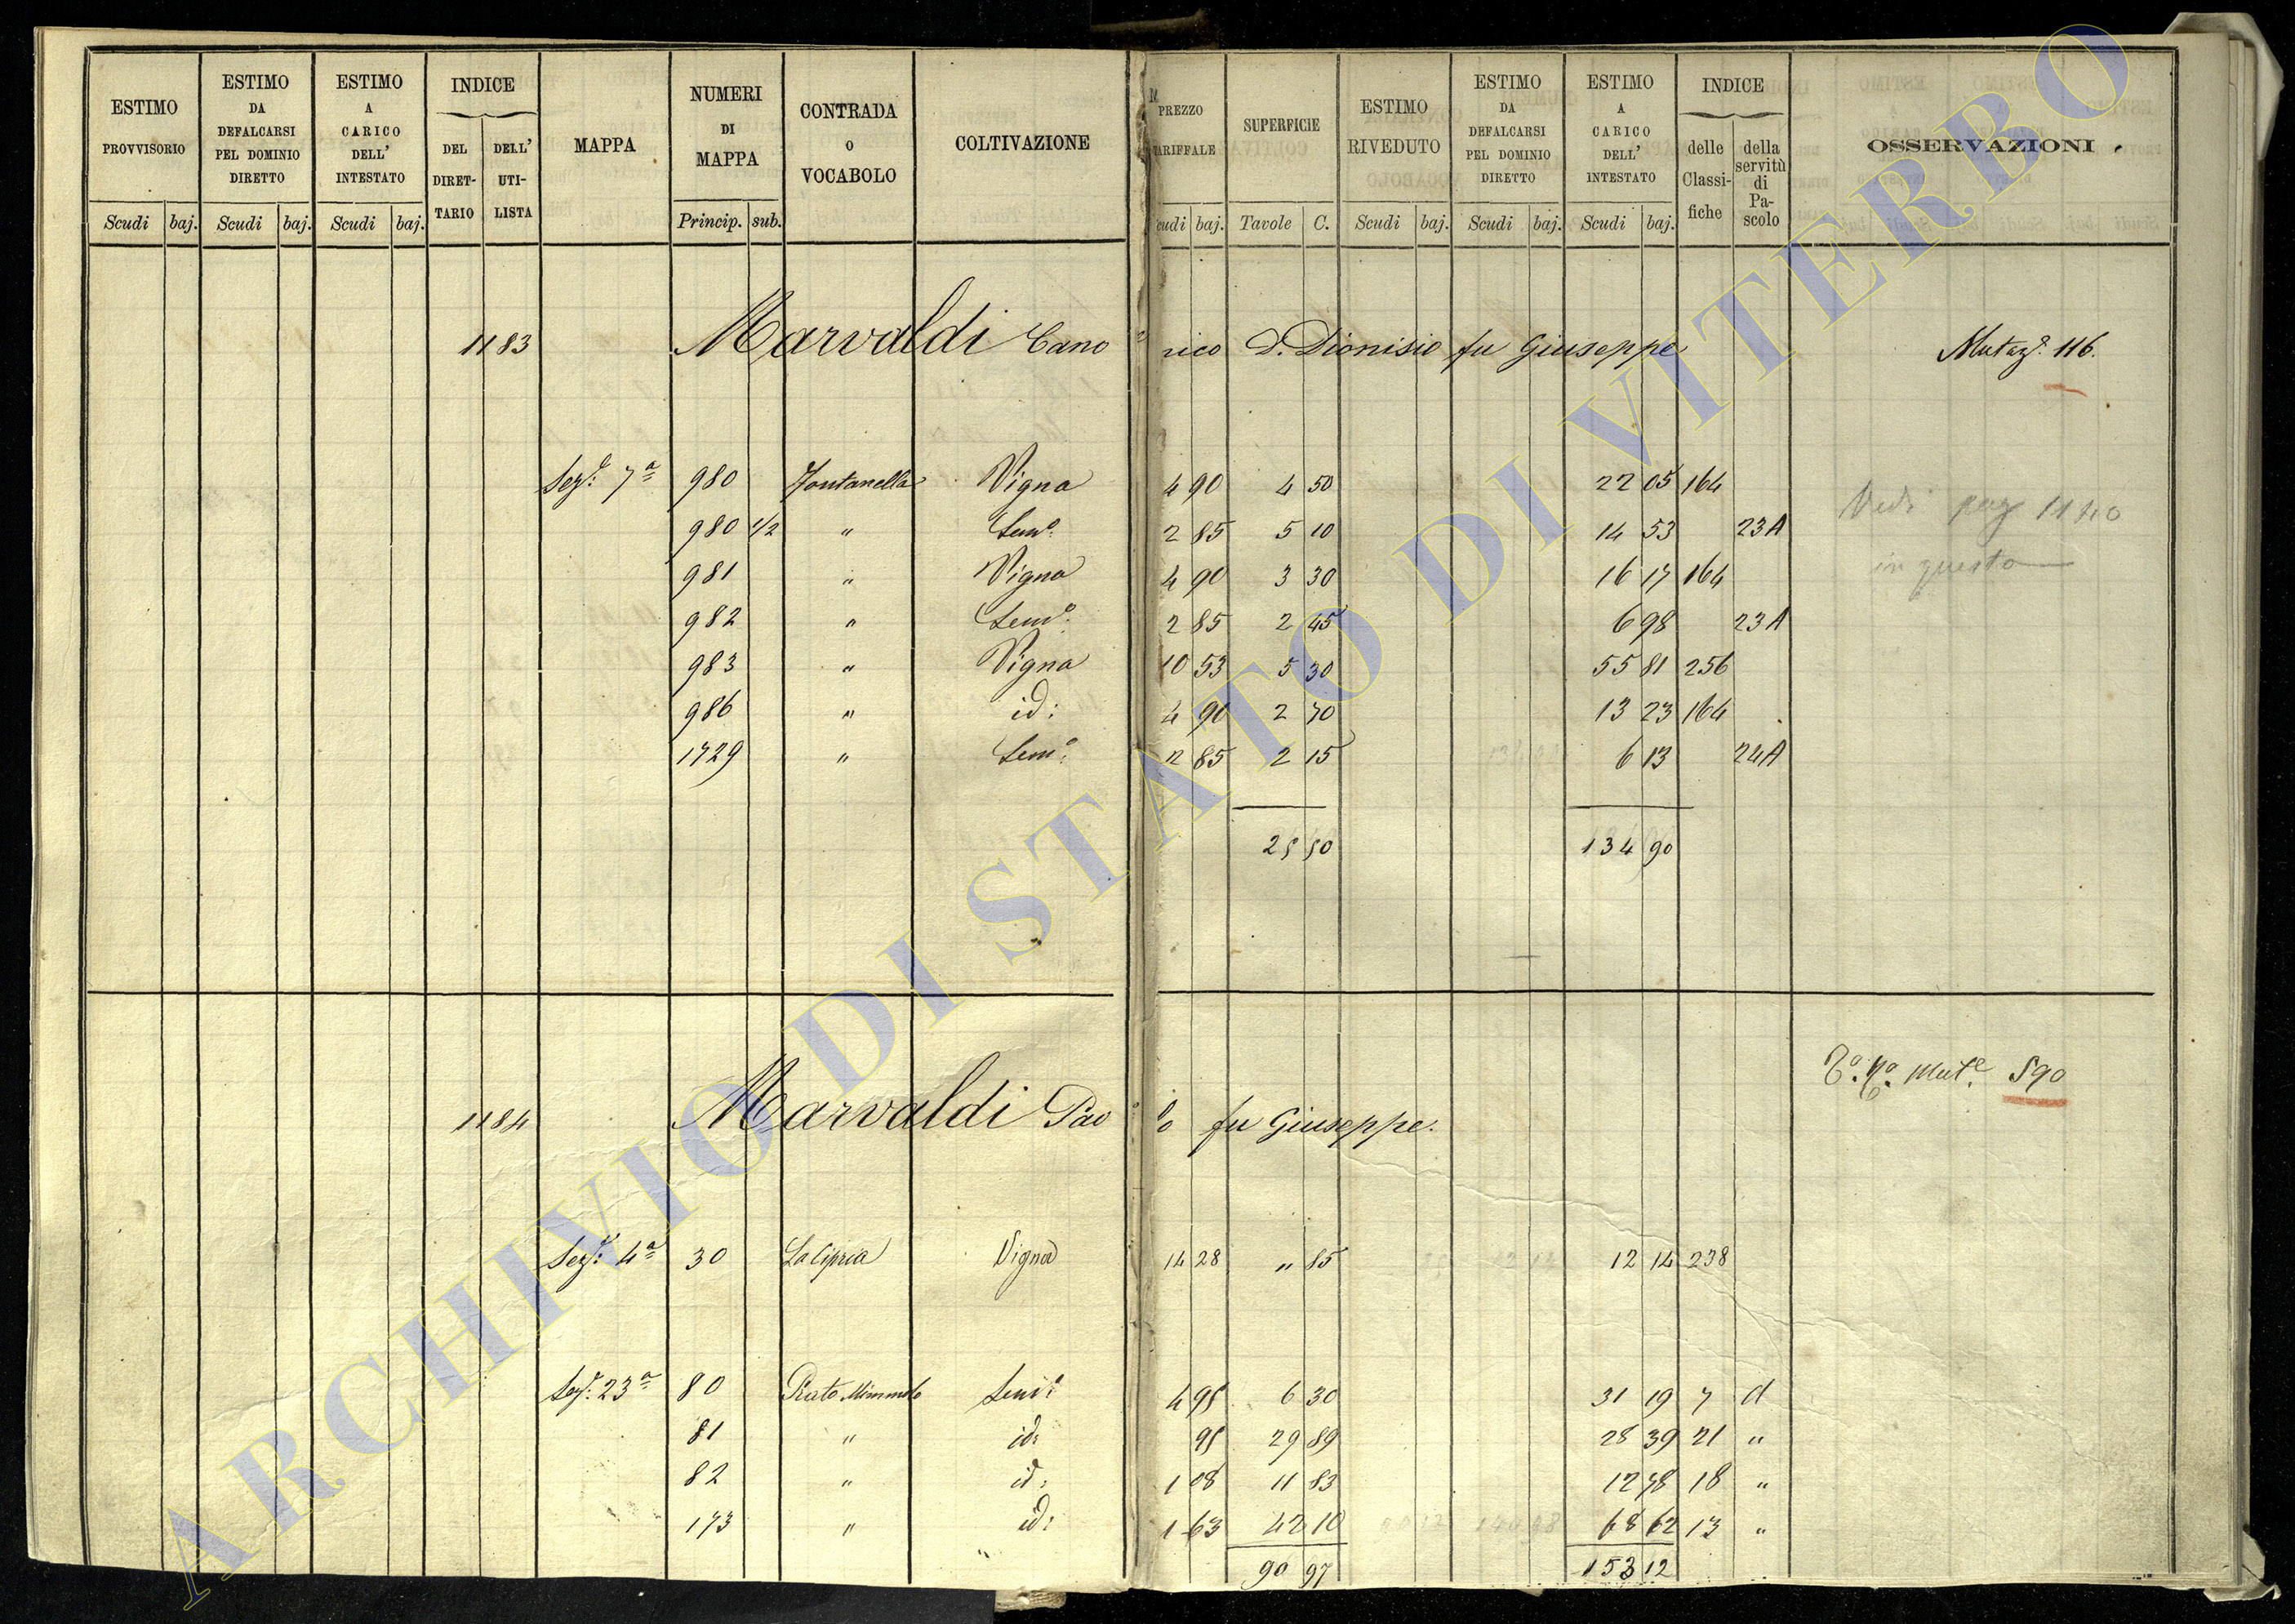 ESTIMO PROVVISORIO Scudi baj.
ESTIMO DA DEFALCARSI PEL DOMINIO DIRETTO Scudi baj.
ESTIMO A CARICO DELL' INTESTATO Scudi baj.
INDICE DEL DIRET-TARIO DELL' UTI-LISTA
MAPPA
NUMERI DI MAPPA Princip. sub.
CONTRADA O VOCABOLO
COLTIVAZIONE
PREZZO TARIFFALE cudi baj.
SUPERFICIE Tavole C.
ESTIMO RIVEDUTO Scudi baj.
ESTIMO DA DEFALCARSI PEL DOMINIO DIRETTO Scudi baj.
ESTIMO A CARICO DELL' INTESTATO Scudi baj.
INDICE delle Classi-fiche della servitù di Pa-scolo
OSSERVAZIONI
1183 Marvaldi Cano nico D. Dionisio fu Giuseppe Mutaz. 116.
Sez. 7a 980 Fontanella Vigna 4 90 4 50 22 05 164
980 1/2 " Sem.o 2 85 5 10 14 53 23A
Vedi pag 1140
981 " Vigna 4 90 3 30 16 17 164
in questo
982 " Sem.o 2 85 2 45 6 98 23A
983 " Vigna 10 53 5 30 55 81 256
986 " id: 4 90 2 70 13 23 164
1729 " Sem.o 2 85 2 15 6 13 24A
25 50 134 90
Mut.e 590
1184 Marvaldi Pao lo fu Giuseppe.
Sez. 4a 30 La Cipria Vigna 14 28 " 85 12 14 238
Sez. 23a 80 Prato Mimmolo Sem.o 4 95 6 30 31 19 7 d
81 " id: 95 29 89 28 39 21 "
82 " id: 1 08 11 83 12 78 18 "
173 " id: 1 63 42 10 68 62 13 "
90 97 153 12
ARCHIVIO DI STATO DI VITERBO